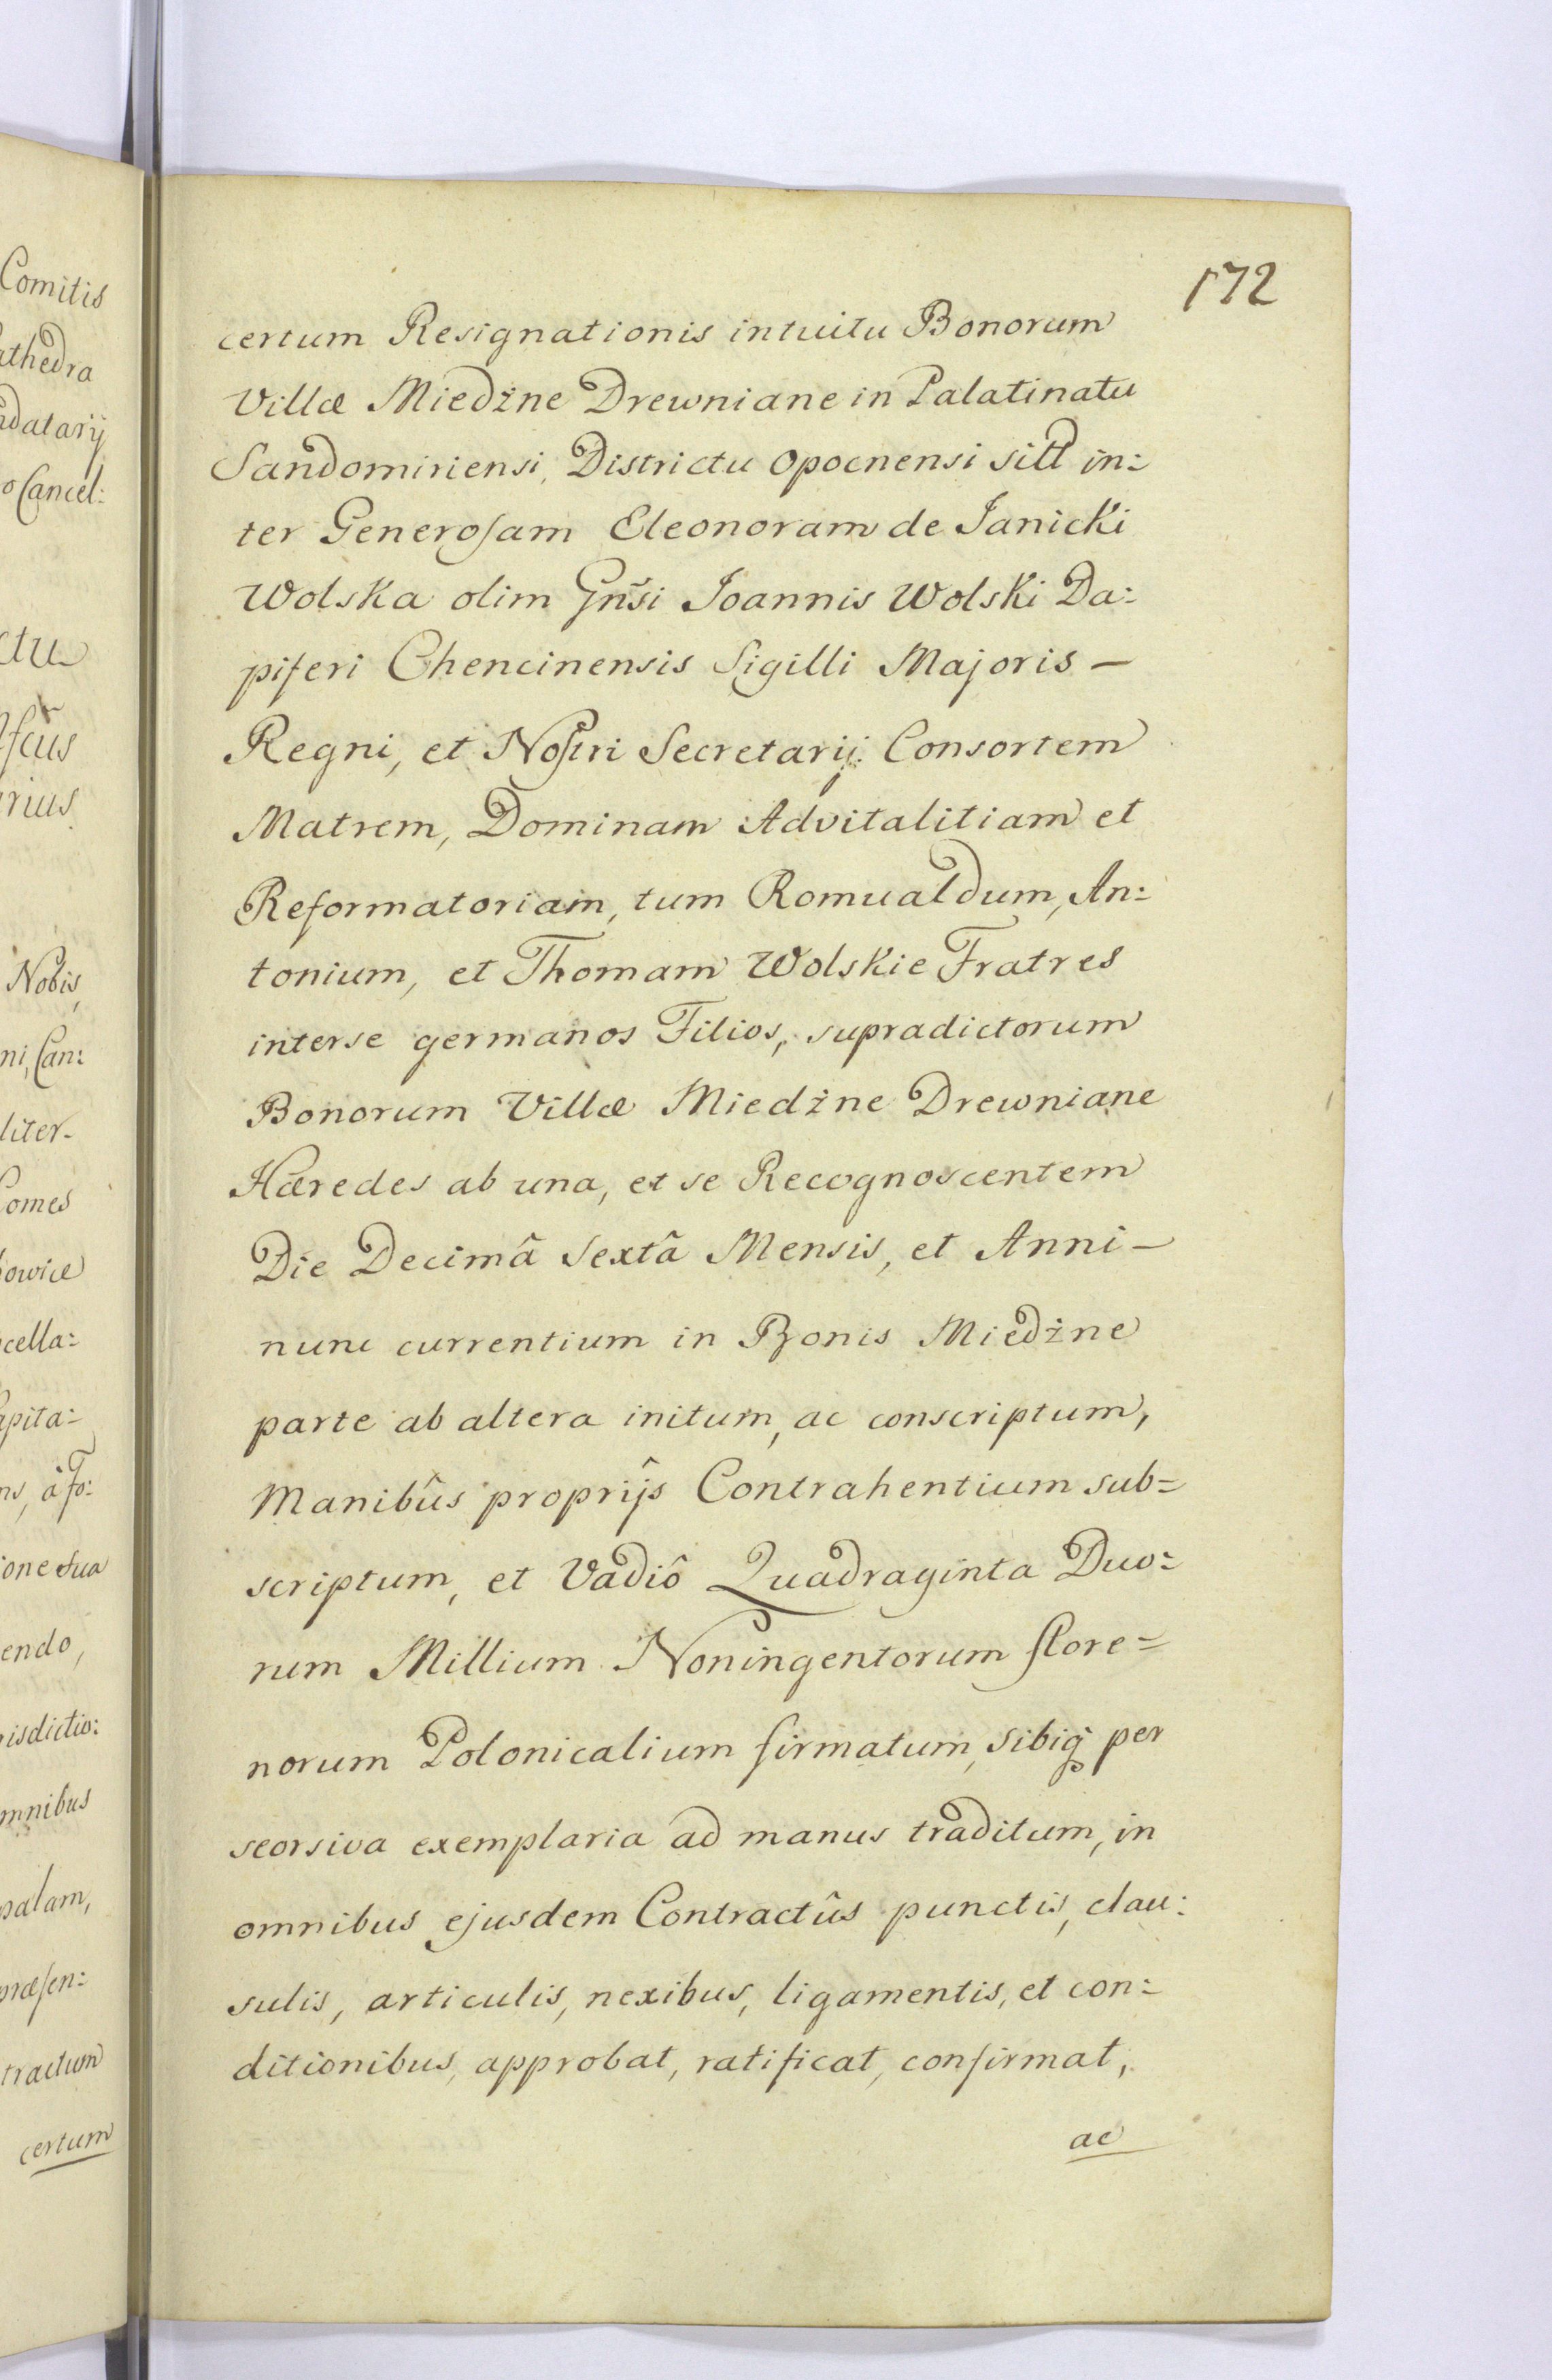 172
certum Resignationis intuitu Bonorum
Villæ Miedżne Drewniane in Palatinatu
Sandomiriensi, Districtu Opocnensi sitt in:
ter Generosam Eleonoram de Janicki
Wolska olim Gnsi Joannis Wolski Da:
piferi Chencinensis Sigilli Majoris –
Regni, et Nostri Secretarij Consortem
Matrem, Dominam Advitalitiam et
Reformatoriam, tum Romualdum, An:
tonium, et Thomam Wolskie Fratres
interse germanos Filios, supradictorum
Bonorum Villæ Miedżne Drewniane
Hæredes ab una, et se Recognoscentem
Die Decimâ Sextâ Mensis, et Anni –
nunc currentium in Bonis Miedżne
parte ab altera initum, ac conscriptum,
Manibûs proprijs Contrahentium sub=
scriptum, et Vadiô Quadraginta Duo:
rum Millium Noningentorum flore=
norum Polonicalium firmatum, sibiq per
seorsiva exemplaria ad manus traditum, in
omnibus ejusdem Contractûs punctis, clau:
sulis, articulis, nexibus, ligamentis, et con:
ditionibus, approbat, ratificat, confirmat,
ac
Comitis
athedra
ndatarij
Cancel:
ctu
rius
Nobis,
ni, Can:
liter-
Comes
owice
cella:
apita:
ione sua
endo,
isdictio:
mnibus
palam,
præsen:
tractum
certum